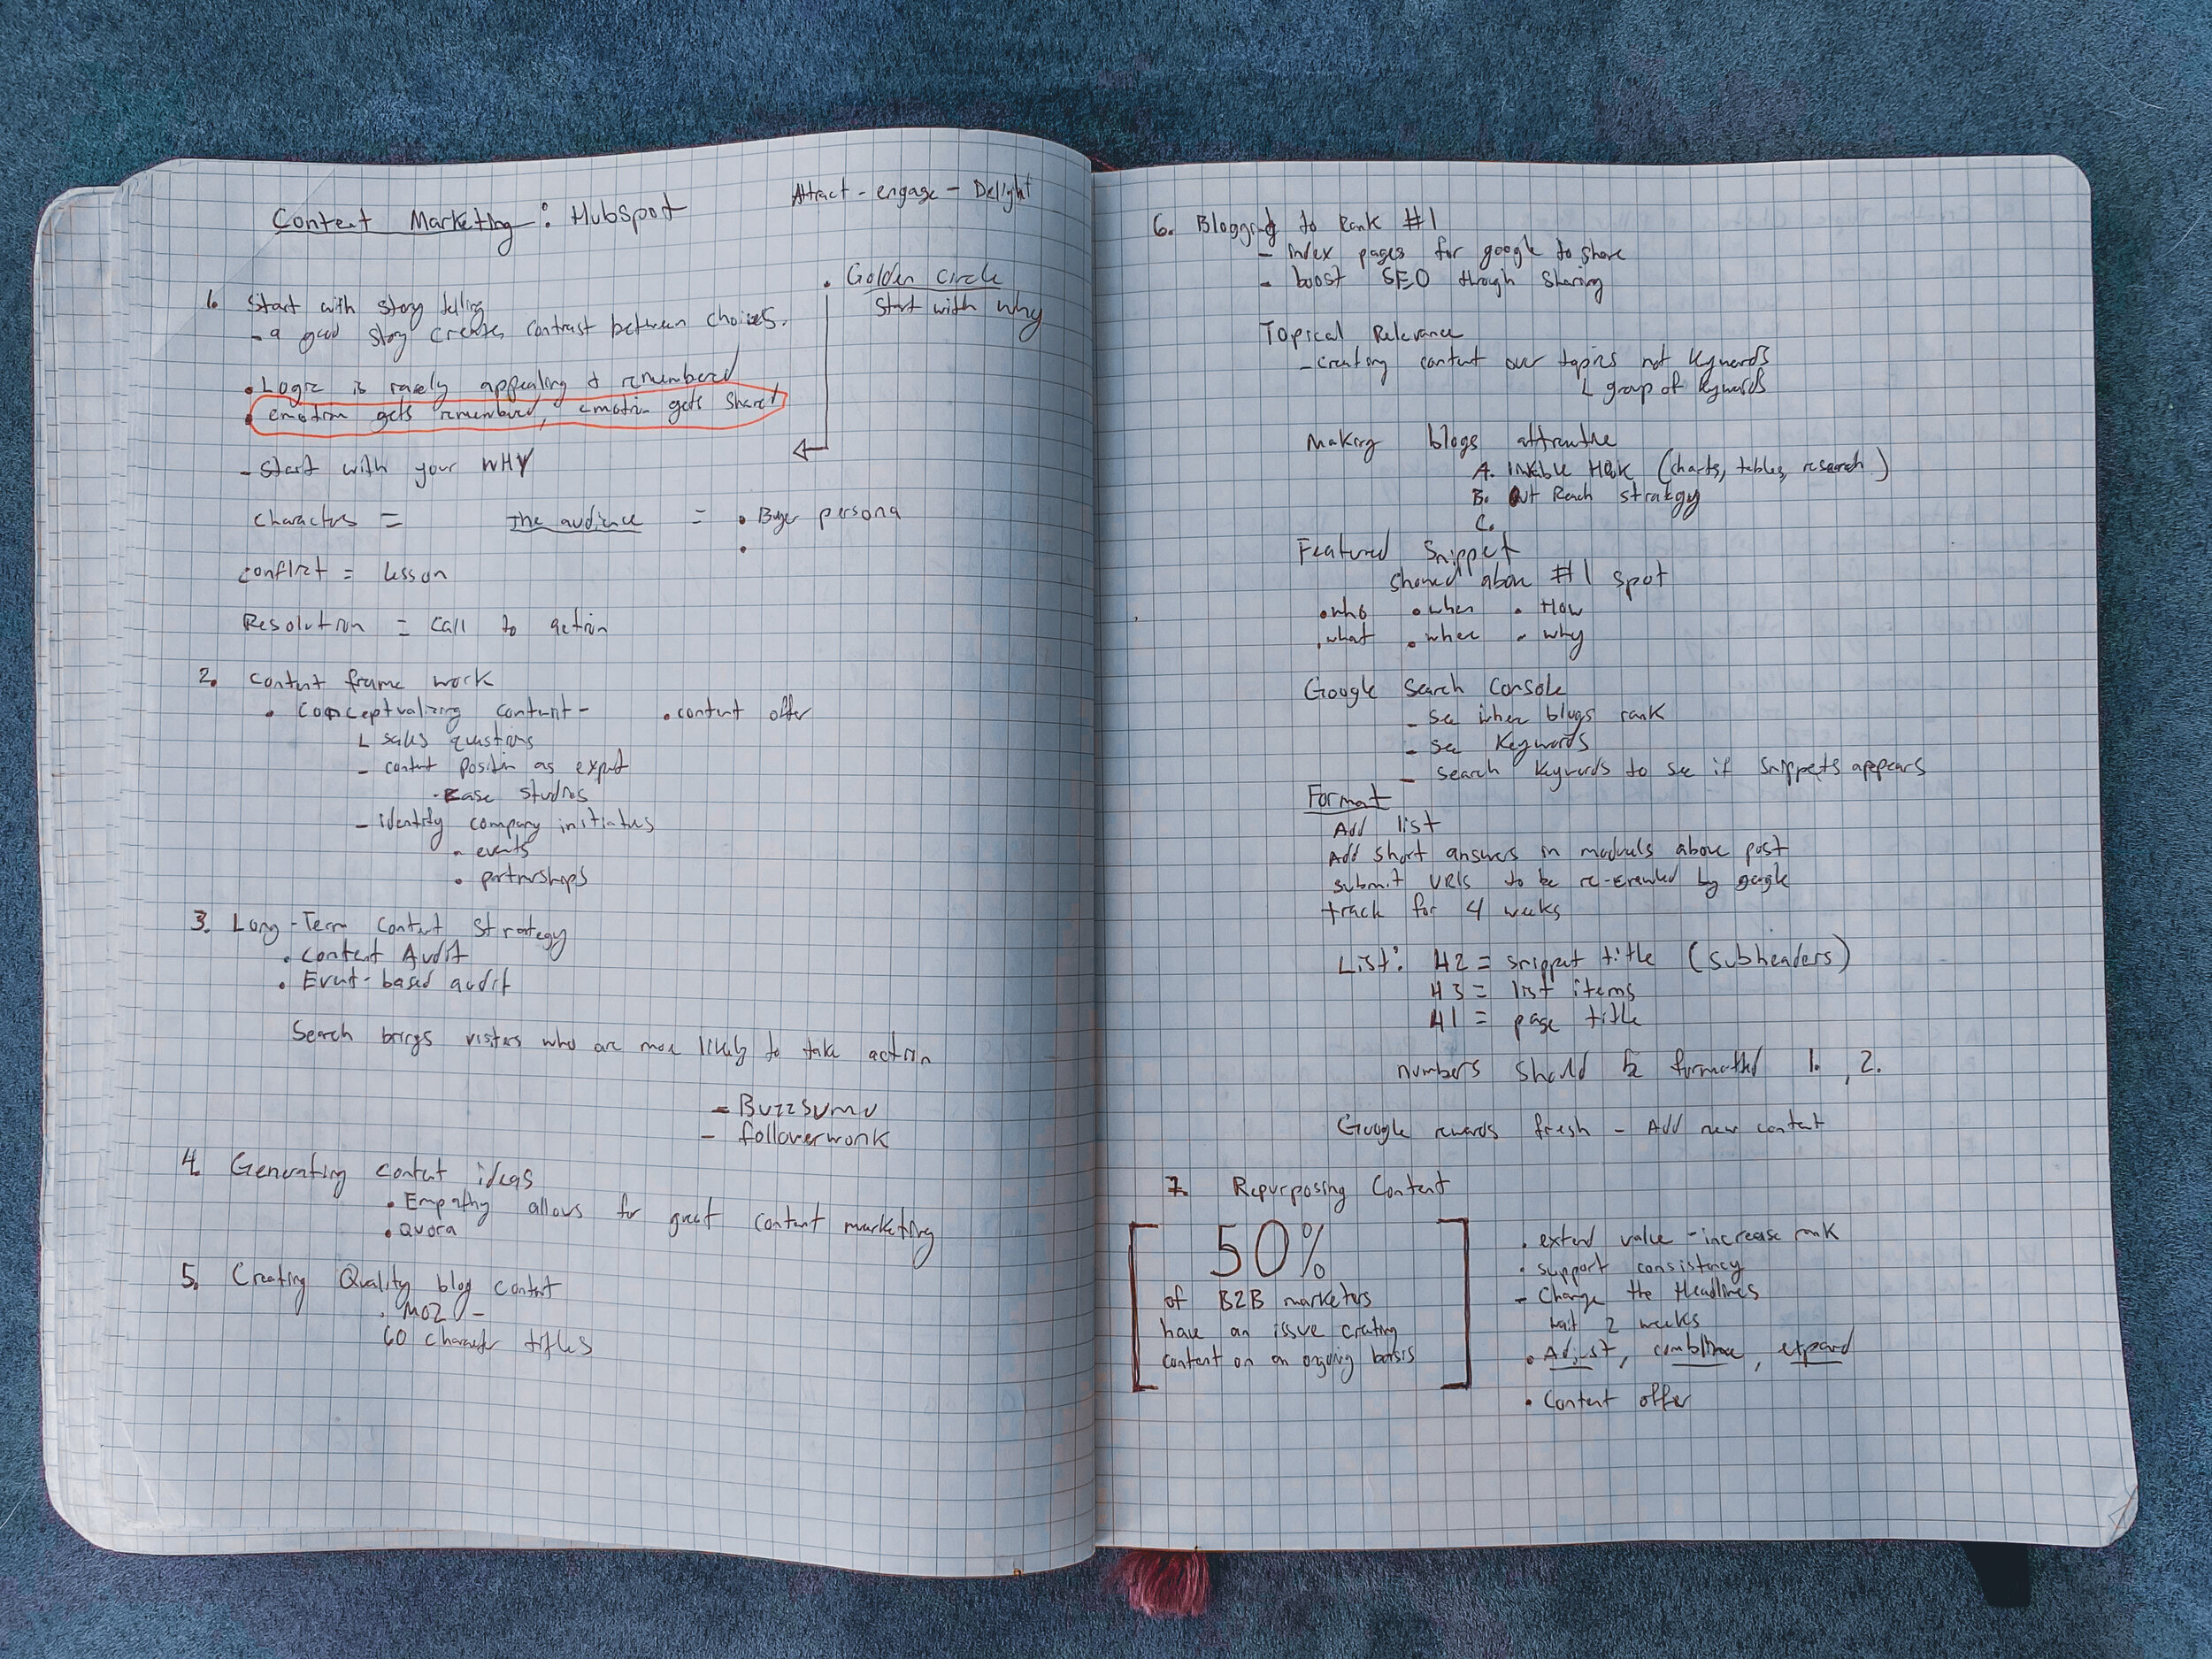 Content Marketing: Hubspot
Attract - engage - Delight
• Golden Circle
Start with why
1. Start with story telling
- a good story creates contrast between choices.
• Logic is rarely appealing & remembered
• emotion gets remembered, emotion gets shared
- Start with your WHY
Characters = the audience = • Buyer persona
•
conflict = lesson
Resolution = call to action
2. Content frame work
• Conceptualizing content - • content offer
L sales questions
- content position as expert
- case studies
- identify company initiatives
• events
• partnerships
3. Long-Term Content Strategy
• Content Audit
• Event-based audit
Search brings visitors who are more likely to take action
- Buzzsumo
- followerwonk
4. Generating content ideas
• Empathy allows for great content marketing
• Quora
5. Creating Quality blog content
• MOZ -
60 character titles
6. Blogging to Rank #1
- index pages for google to share
- boost SEO though sharing
Topical Relevance
- creating content over topics not keywords
L group of keywords
Making blogs attractive
A. Hook (charts, tables, research)
B. Out Reach strategy
C.
Featured Snippet
showed above #1 spot
• who • when • How
• what • where • why
Google Search Console
- see where blogs rank
- see keywords
- search keywords to see if snippets appears
Format
Add list
Add short answers in moduals above post
submit URLs to be re-crawled by google
track for 4 weeks
List: H2 = snippet title (subheaders)
H3 = list items
H1 = page title
numbers should be formatted 1. , 2.
Google rewards fresh - Add new content
7. Repurposing Content
50%
of B2B marketers
have an issue crating
content on an ongoing basis
• extend value - increase rank
• support consistency
- Change the Headlines
wait 2 weeks
• Adjust, combine, expand
• Content offer